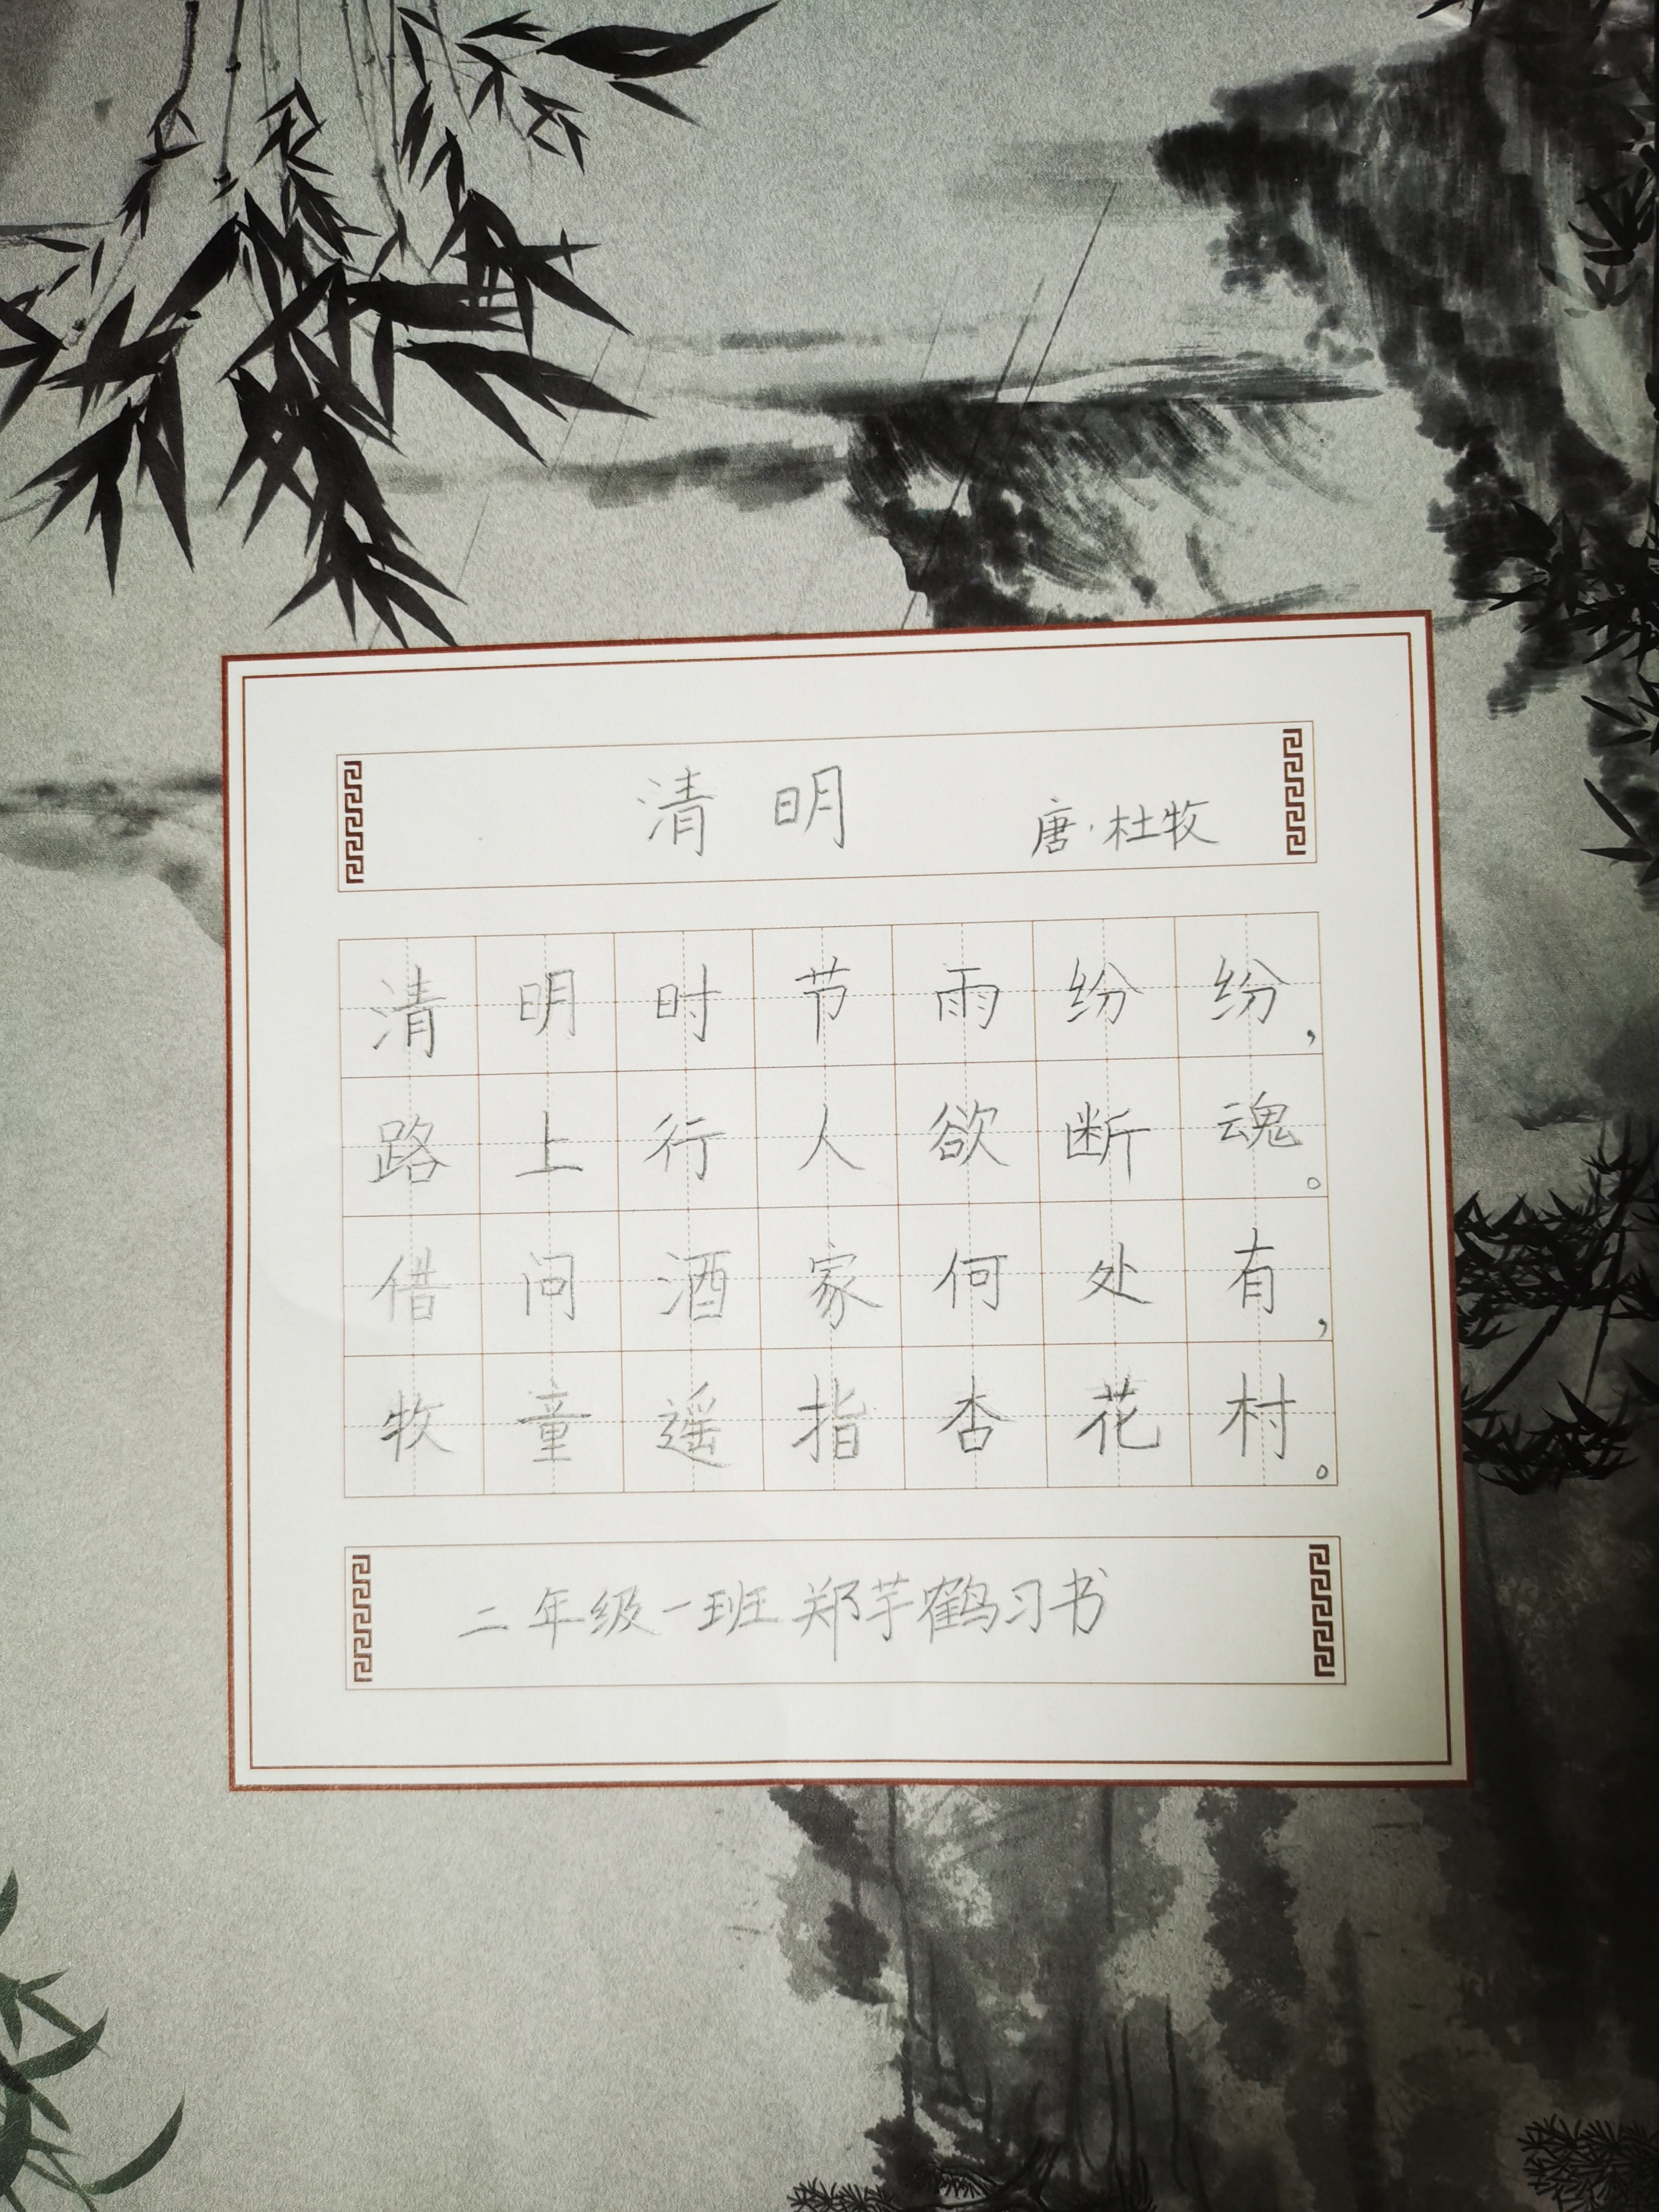 清明 唐·杜牧
清明时节雨纷纷，
路上行人欲断魂。
借问酒家何处有，
牧童遥指杏花村。
二年级一班郑芋鹤习书